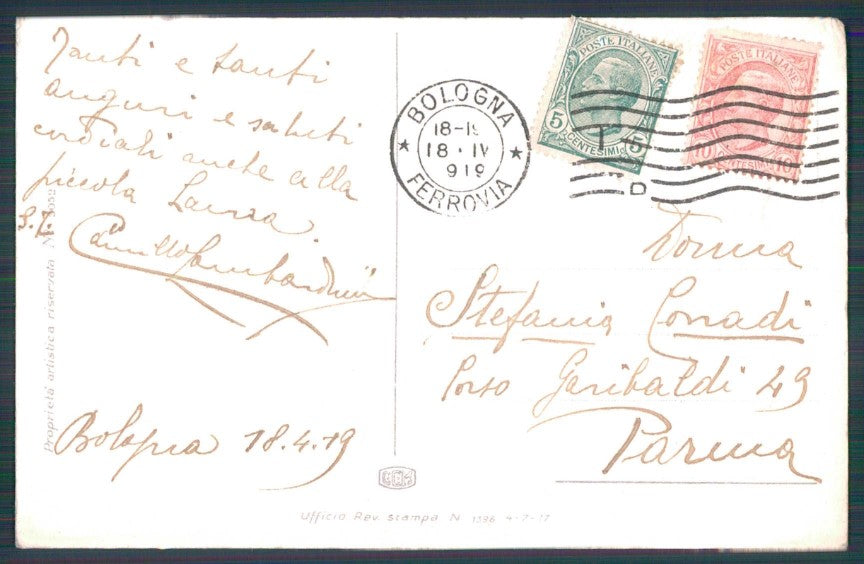 Tanti e tanti
auguri e saluti
cordiali anche alla
piccola Laura.
Camillo Lombardini
Bologna 18.4.19
Proprietà artistica riservata
BOLOGNA
18-19
18·IV
919
FERROVIA
POSTE ITALIANE
5 CENTESIMI 5
T
D
POSTE ITALIANE
10 CENTESIMI 10
Donna
Stefania Corradi
Corso Garibaldi 49
Parma
Ufficio Rev. stampa N 1386 4-7-17